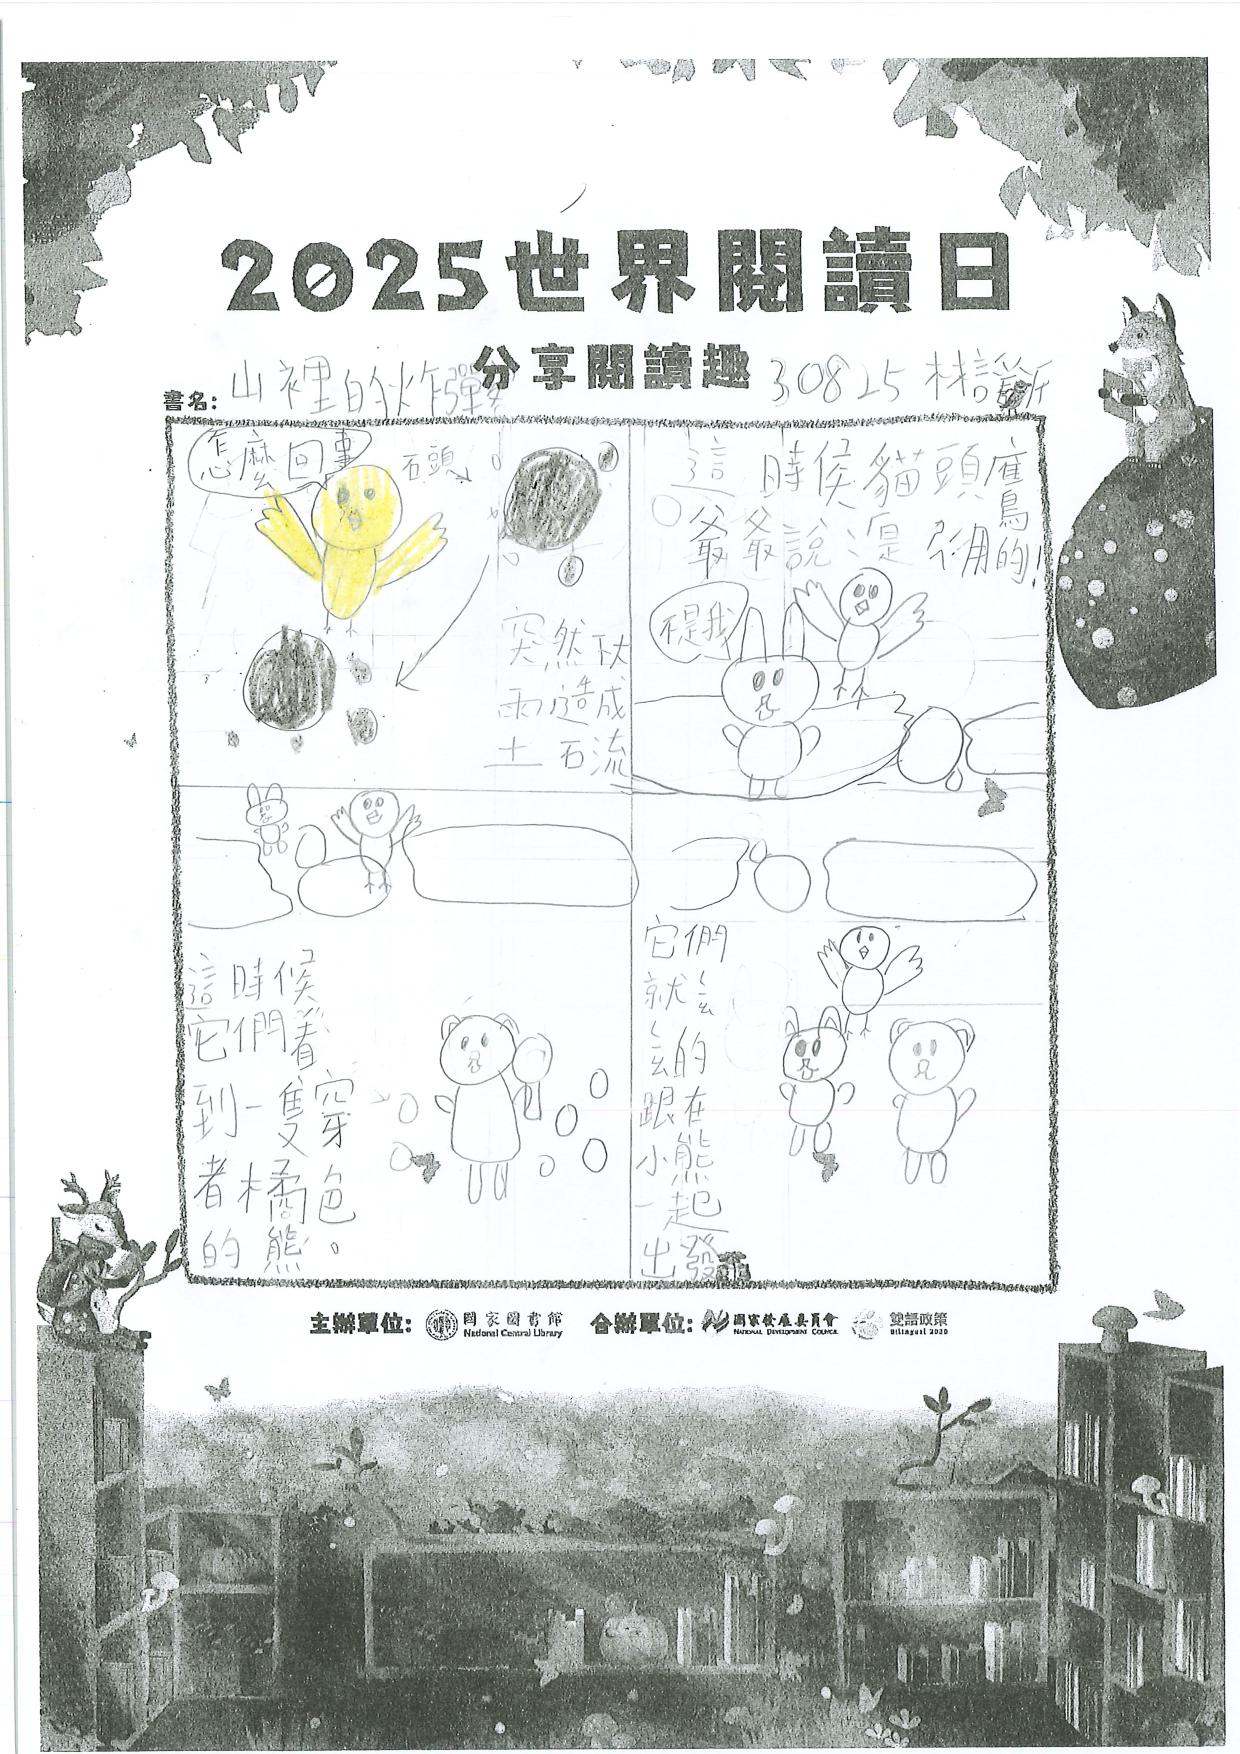 2025世界閱讀日
分享閱讀趣
書名:山裡的炸彈
30825 林
怎麼回事
石頭
突然
雨造成
土石流
這時候貓頭鷹
爺爺說是 的!
不是我
這時候
它們看
到一隻穿
著橘色
的熊。
它們
就
的
跟在
小熊
一起
出發
主辦單位: 國家圖書館 合辦單位: 國家發展委員會 雙語政策
National Central Library NATIONAL DEVELOPMENT COUNCIL Bilingual 2030